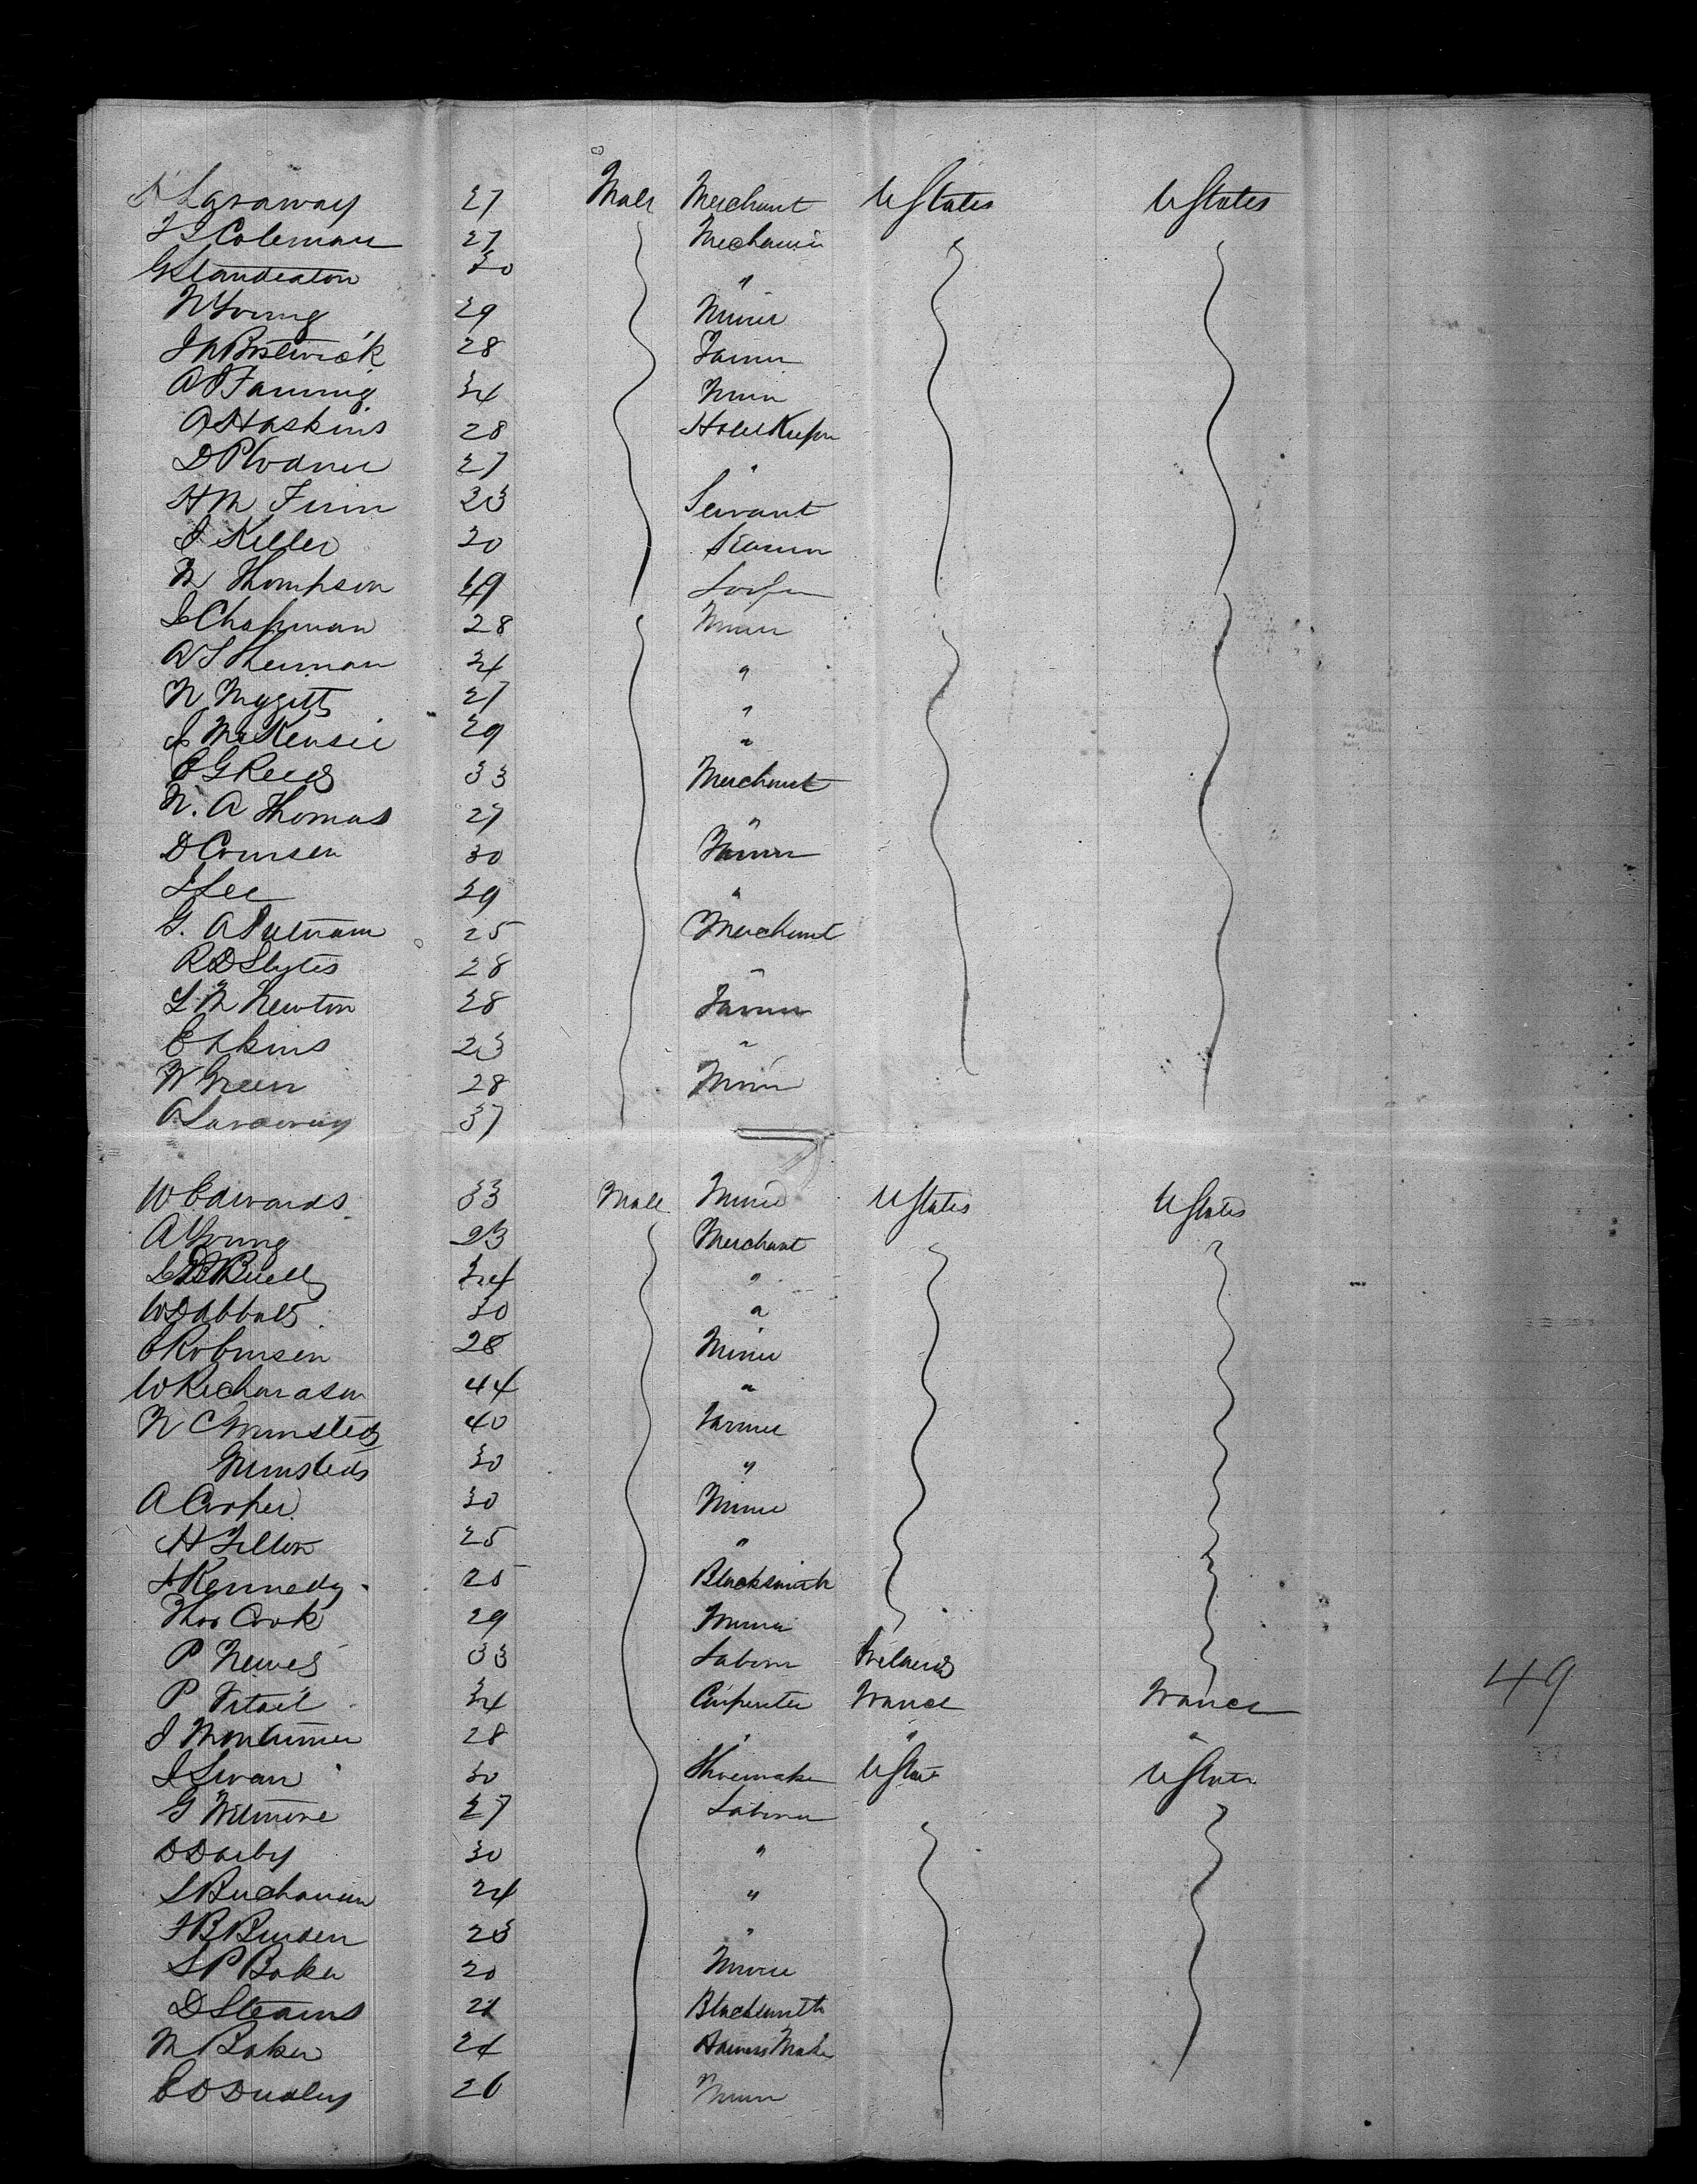 Laraway 27 Male Merchant U States U States
Coleman 27 Mechanic
G Standeaton 30 "
N Young 29 Miner
J A Bostwick 28 Farmer
A Fanning 34 Miner
A Haskins 28 Hotel Keeper
D P 27 "
H M Finn 23 Servant
J Keller 20 Steamer
M Thompson 49 Loafer
L Chapman 28 Miner
A Sherman 24 "
N Mygatt 27 "
J McKensie 29 "
C G Reed 33 Merchant
N. A Thomas 27 "
D Coursen 30 Farmer
J Lee 29 "
G. A Putnam 25 Merchant
R D Styles 28 "
L M Newton 28 Farmer
E 23 "
W Green 28 Miner
A Laraway 37
W Edwards 33 Male Miner U States U States
A Young 23 Merchant
L B Buell 34 "
W D Abbott 30 "
C Robinson 28 Miner
W Richardson 44 "
N C Grimsted 40 Farmer
Grimsted 30 "
A Cooper 30 Miner
H Tilton 25 "
J Kennedy 25 Blacksmith
Thos Cook 29 Miner
P Newes 33 Laborer Ireland
P 34 Carpenter France France
J Mortimer 28 " " "
J Swan 30 Shoemaker U State U States
G Wilmore 27 Laborer
D Darby 30 "
S Buchanan 24 "
J B Burden 23 "
S P Baker 20 Miner
D Stearns 21 Blacksmith
M Baker 24 Harness Maker
C D Dudley 26 Miner
49